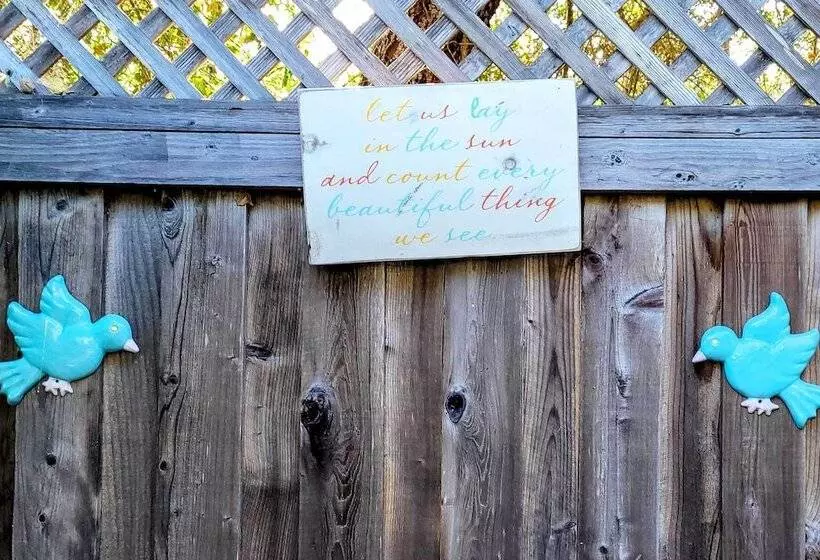 let us lay
in the sun
and count every
beautiful thing
we see